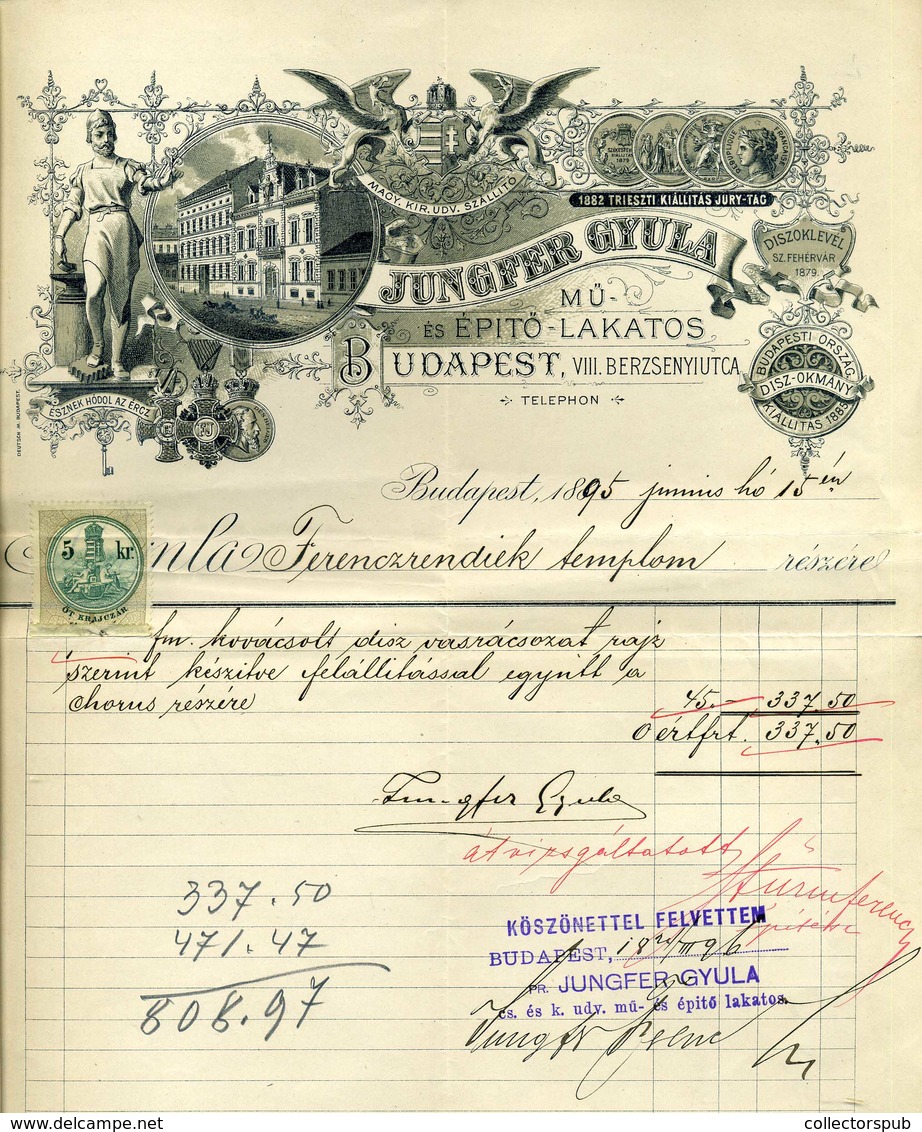 MAGY. KIR. UDV. SZÁLITÓ
SZÉKESFEHÉRVÁRI KIÁLLITÁS 1879
1882 TRIESZTI KIÁLLITÁS JURY-TAG
JUNGFER GYULA
MŰ-
ÉS ÉPITŐ-LAKATOS
BUDAPEST, VIII. BERZSENYIUTCA
TELEPHON
DISZOKLEVÉL
SZ. FEHÉRVÁR
1879.
BUDAPESTI ORSZÁG.
DISZ-OKMÁNY
KIÁLLITÁS 1885
ÉSZNEK HÓDOL AZ ÉRCZ
DEUTSCH M. BUDAPEST
Budapest, 1895 junius hó 15 én
5 kr.
ÖT KRAJCZÁR
Ferenczrendiek templom részére
fm. kovácsolt disz vasrácsozat rajz
szerint készitve felállitással együtt a
chorus részére 45.- 337.50
O értfrt. 337.50
Jungfer Gyula
átvizsgáltatott
337.50
471.47
808.97
KÖSZÖNETTEL FELVETTEM
BUDAPEST,
PR. JUNGFER GYULA
cs. és k. udv. mű- és épitő lakatos.
Jungfer
collectorspub